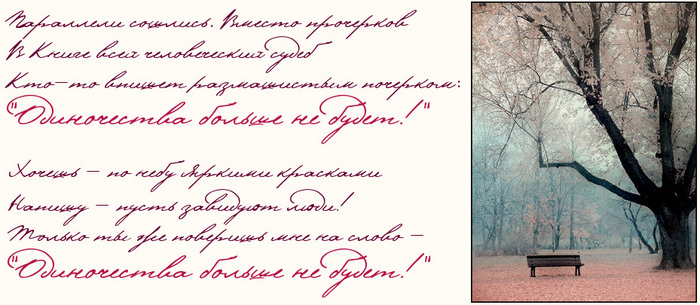 Параллели сошлись. Вместо прочерков
В Книге всей человеческий судеб
Кто-то впишет размашистым почерком:
"Одиночества больше не будет!"
Хочешь – по небу яркими красками
Напишу – пусть завидуют люди!
Только ты же поверишь мне на слово –
"Одиночества больше не будет!"